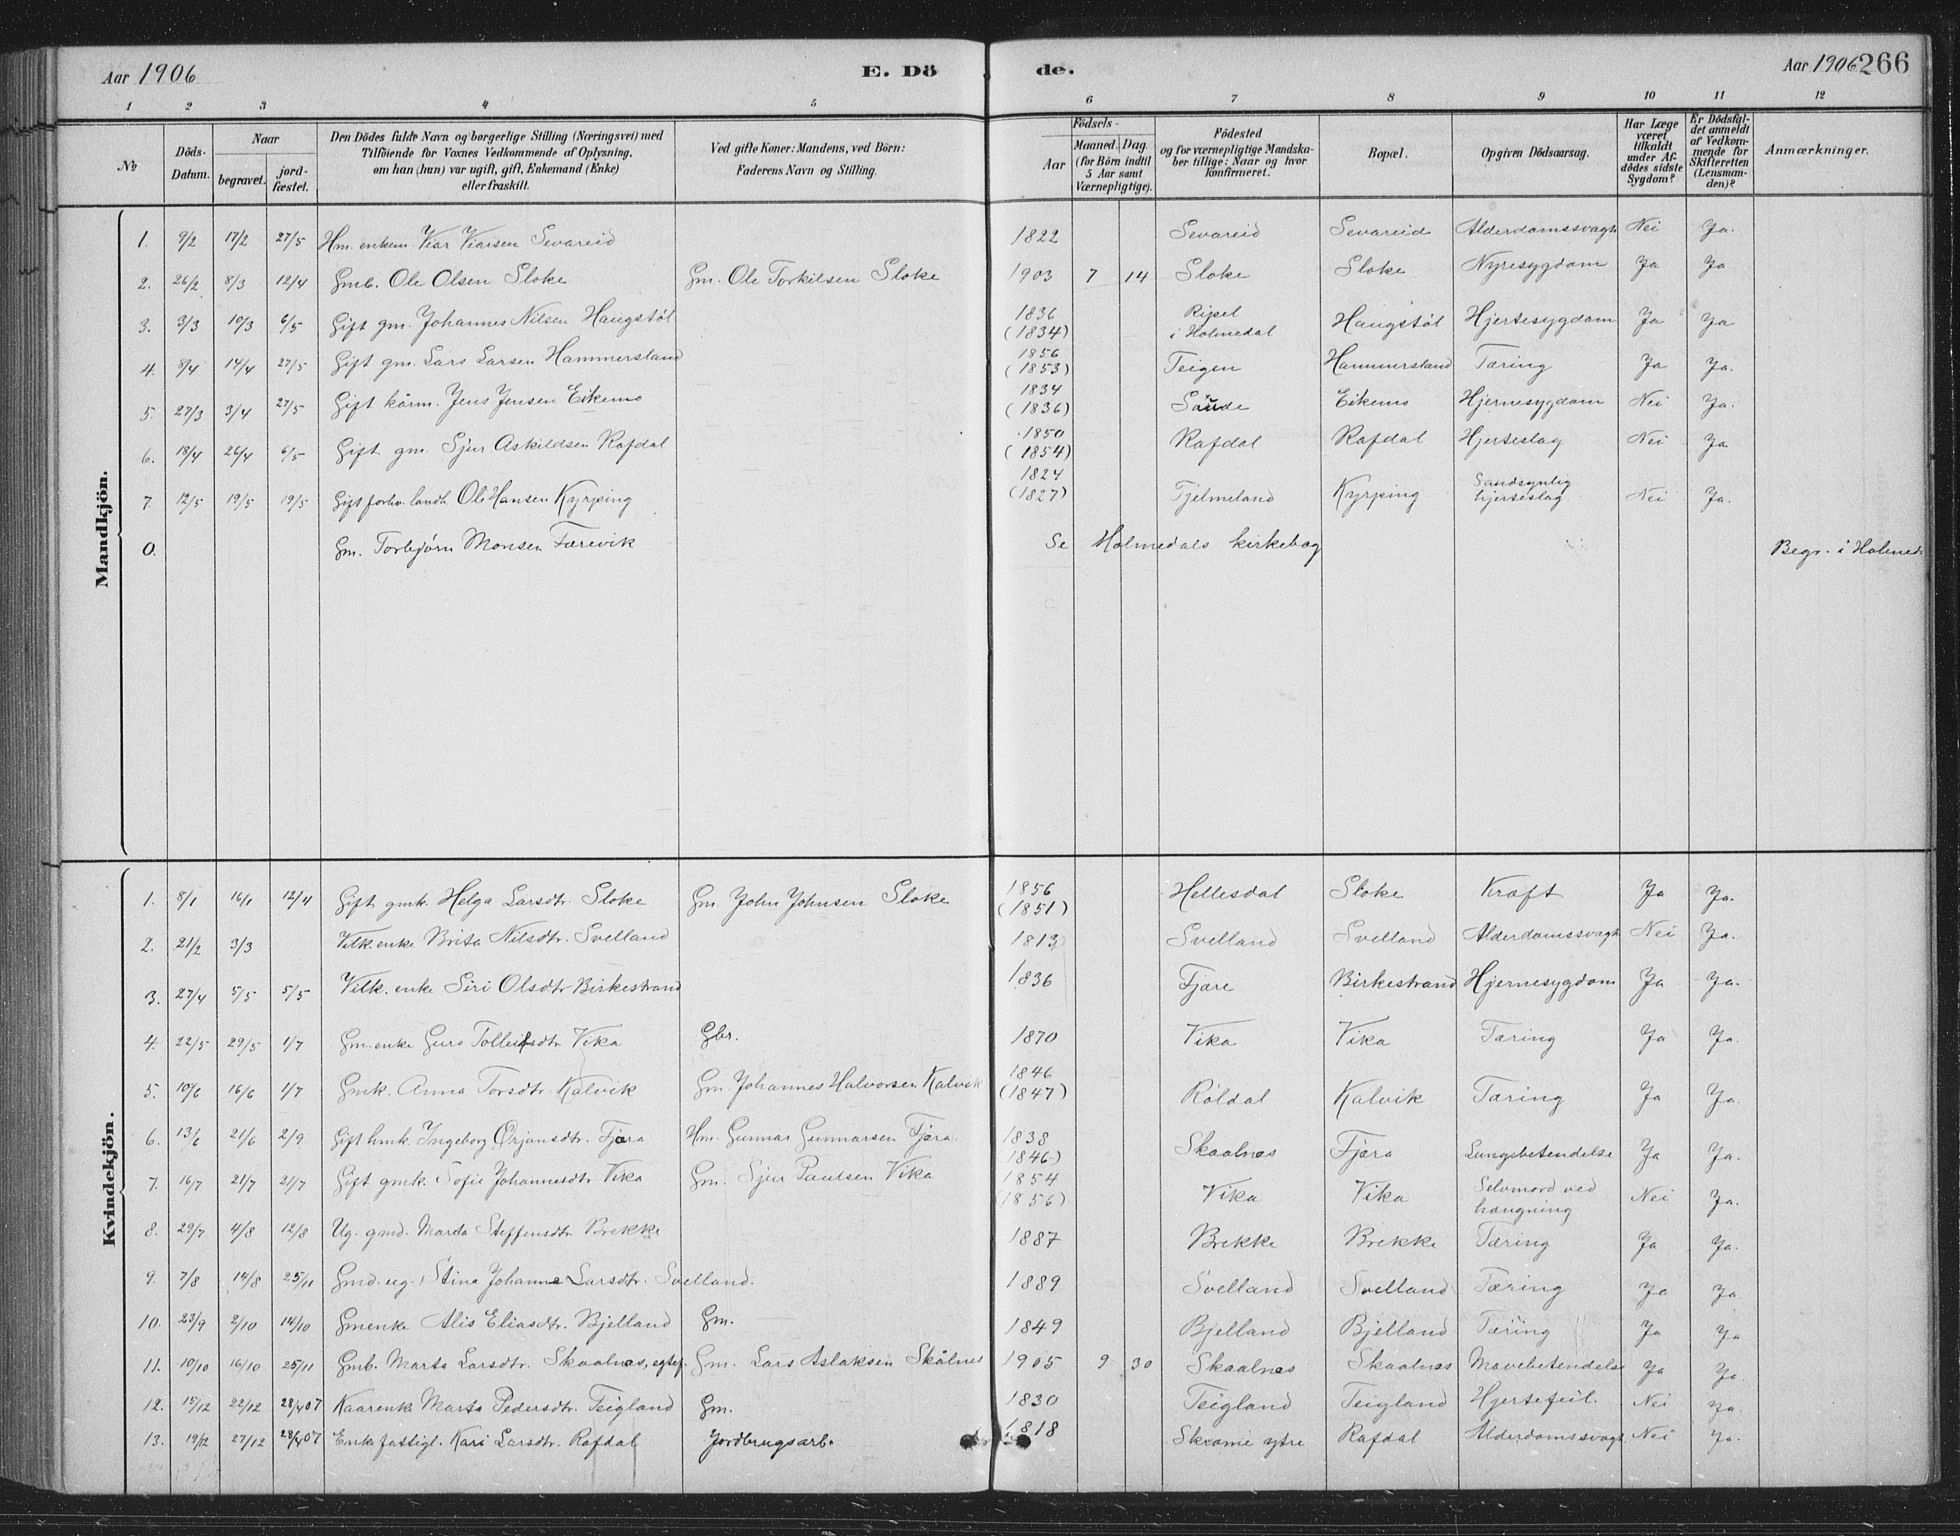 Aar 1906 E. Dö de. Aar 1906 266
1 2 3 4 5 6 7 8 9 10 11 12
No
Döds-Datum.
Naar
begravet.
jord-fæstet.
Den Dödes fulde Navn og borgerlige Stilling (Næringsvei) med
Tilföiende for Voxnes Vedkommende af Oplysning,
om han (hun) var ugift, gift, Enkemand (Enke)
eller fraskilt.
Ved gifte Koner: Mandens, ved Börn:
Faderens Navn og Stilling.
Födsels-
Aar
Maaned. Dag.
(for Börn indtil
5 Aar samt
Værnepligtige).
Födested
og for værnepligtige Mandska-
ber tillige: Naar og hvor
konfirmeret.
Bopæl.
Opgiven Dödsaarsag.
Har Læge
været
tilkaldt
under Af-
dödes sidste
Sygdom?
Er Dödsfal-
det anmeldt
af Vedkom-
mende for
Skifteretten
(Lensman-
den)?
Anmærkninger.
Mandkjön.
1. 9/2 17/2 27/5 Hm. enkem. Viar Viarsen Sevareid 1822 Sevareid Sevareid Alderdomssvagh Nei Ja.
2. 26/2 8/3 12/4 Gmb. Ole Olsen Sloke Gm. Ole Torkilsen Sloke 1903 7 14 Sloke Sloke Nyresygdom Ja Ja
3. 3/3 10/3 6/5 Gift gm. Johannes Nilsen Haugstøl 1836 (1834) Ripel i Holmedal Haugstøl Hjertesygdom Ja Ja
4. 8/4 14/4 27/5 Gift gm. Lars Larsen Hammersland 1856 (1853) Teigen Hammersland Tæring Ja Ja.
5. 27/3 3/4 27/5 Gift kårm. Jens Jensen Eikemo 1834 (1836) Saude Eikemo Hjernesygdom Nei Ja.
6. 18/4 26/4 6/5 Gift gm. Sjur Askildsen Rafdal 1850 (1854) Rafdal Rafdal Hjerteslag Nei Ja
7. 12/5 19/5 19/5 Gift forhv. landh. Ole Hansen Kyrping 1824 (1827) Tjelmeland Kyrping Sandsynlig hjerteslag Nei Ja.
0. Gm. Torbjørn Monsen Færevik Se Holmedals kirkebog Begr. i Holmed.
Kvindekjön.
1. 8/1 16/1 12/4 Gift gmk. Helga Larsdtr. Sloke Gm. John Johnsen Sloke 1856 (1851) Hellesdal Sloke Kræft Ja Ja.
2. 21/2 3/3 Vilk. enke Brita Nilsdtr. Svelland 1813 Svelland Svelland Alderdomssvagh Nei Ja.
3. 27/4 5/5 5/5 Vilk. enke Siri Olsdtr Birkestrand 1836 Fjære Birkestrand Hjernesygdom Ja Ja.
4. 22/5 29/5 1/7 Gm. enke Guro Tolleifsdtr Vika Gbr. 1870 Vika Vika Tæring Ja Ja.
5. 10/6 16/6 1/7 Gmk. Anna Torsdtr Kalvik Gm. Johannes Halvorsen Kalvik 1846 (1847) Røldal Kalvik Tæring Ja Ja.
6. 13/6 21/6 2/9 Gift hmk. Ingeborg Ørjansdtr. Fjæra Hm. Gunnar Gunnarsen Fjæra. 1838 1846) Skaalnes Fjæra Lungebetendelse Ja Ja.
7. 16/7 21/7 21/7 Gift gmk. Sofie Johannesdtr Vika Gm. Sjur Paulsen Vika 1854 (1856) Vika Vika Selvmord ved hængning Nei Ja.
8. 29/7 4/8 12/8 Ug. gmd. Marta Steffensdtr Brekke 1887 Brekke Brekke Tæring Ja Ja.
9. 7/8 14/8 25/11 Gmd. ug. Stina Johanne Larsdtr. Svelland. 1889 Svelland Svelland Tæring Ja Ja
10. 23/9 2/10 14/10 Gmenke Alis Eliasdtr. Bjelland Gm. 1849 Bjelland Bjelland Tæring Ja Ja
11. 10/10 16/10 25/11 Gmb. Marta Larsdtr. Skaalnes, egtef. Gm. Lars Aslaksen Skålnes 1905 9 30 Skaalnes Skaalnes Mavebetendelse Ja Ja.
12. 15/12 22/12 28/4 07 Kaarenke Marta Pedersdtr. Teigland Gm. 1830 Teigland Teigland Hjertefeil. Nei Ja.
13. 19/12 27/12 28/4 07 Enke fattigl. Kari Larsdtr. Rafdal Jordbrugsarb. 1818 Skromie ytre Rafdal Alderdomssvagh. Nei Ja.